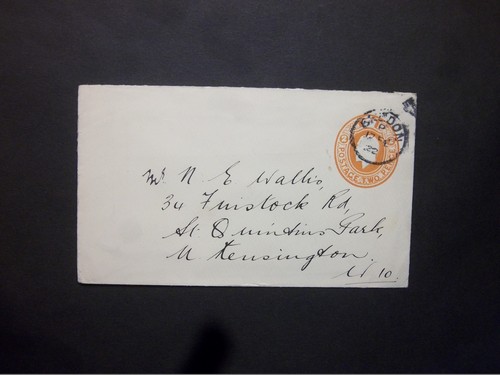 Mr N E Wallis,
34 Finstock Rd,
St Quintins Park,
N Kensington.
W 10.
POSTAGE TWO PE